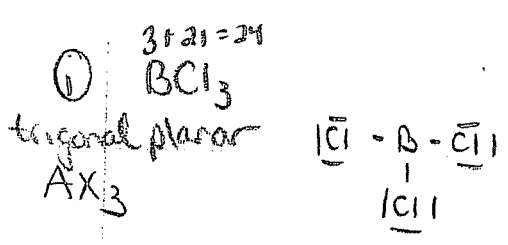 3+21=24
① BCl3
trigonal planar
AX3
|Cl - B - Cl|
|Cl|